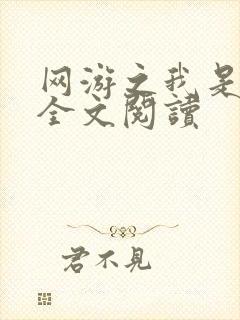 网游之我是
全文閱讀
君不見